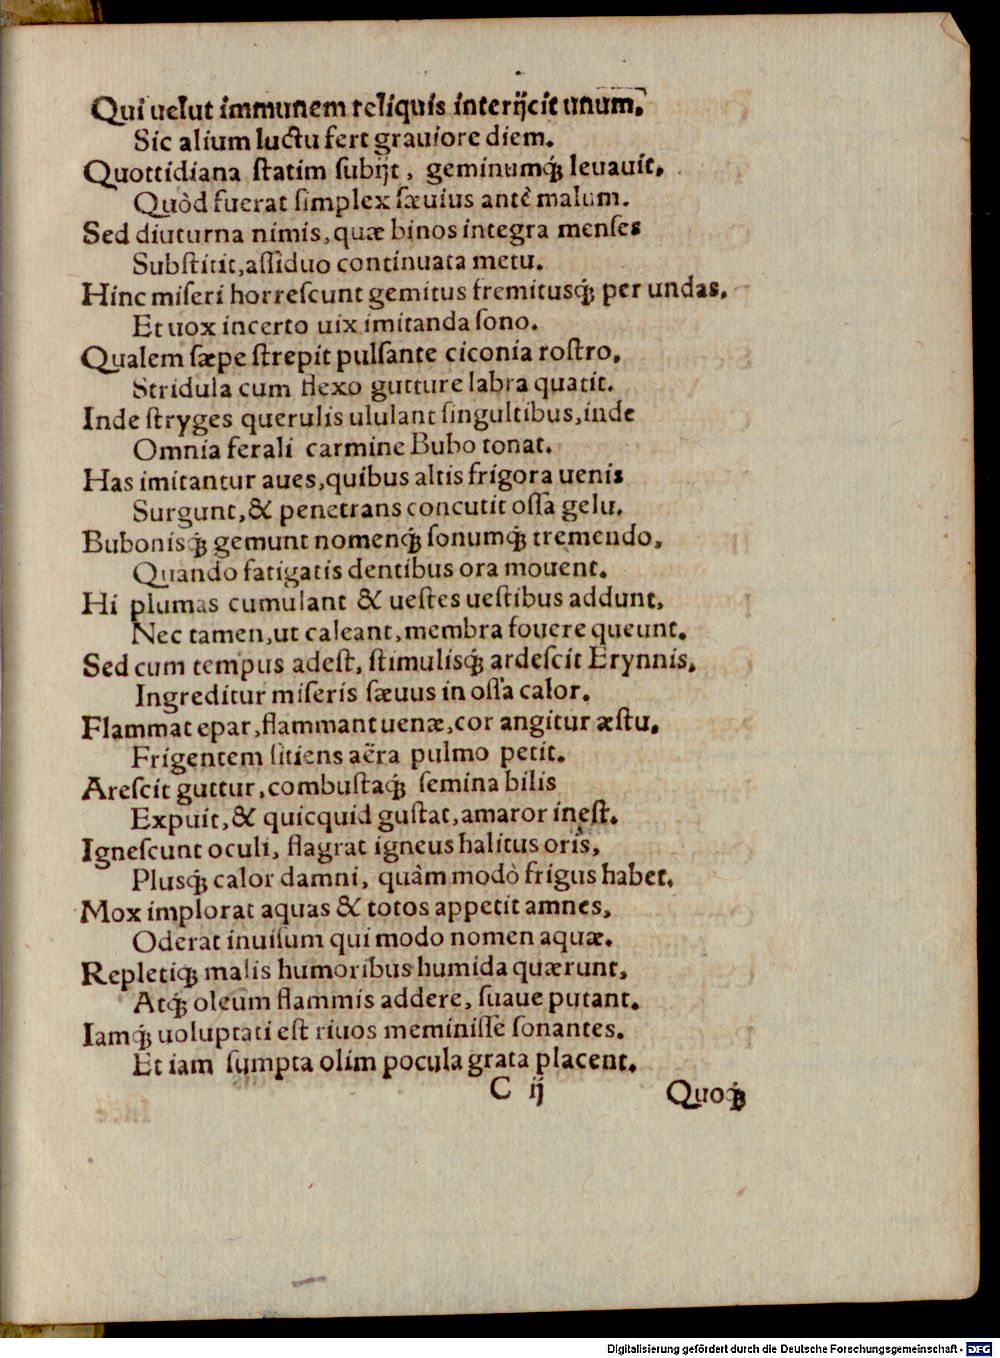 Qui uelut immunem reliquis interijcit unum,
Sic alium luctu fert grauiore diem.
Quottidiana ſtatim ſubijt, geminumq́ꝫ leuauit,
Quòd fuerat ſimplex ſæuius antè malum.
Sed diuturna nimis, quæ binos integra menſes
Subſtitit, aſſiduo continuata metu.
Hinc miſeri horreſcunt gemitus fremitusq́ꝫ per undas,
Et uox incerto uix imitanda ſono.
Qualem ſæpe ſtrepit pulſante ciconia roſtro,
Stridula cum flexo gutture labra quatit.
Inde ſtryges querulis ululant ſingultibus, inde
Omnia ferali carmine Bubo tonat.
Has imitantur aues, quibus altis frigora uenis
Surgunt, & penetrans concutit oſſa gelu.
Bubonisq́ꝫ gemunt nomenq́ꝫ ſonumq́ꝫ tremendo,
Quando fatigatis dentibus ora mouent.
Hi plumas cumulant & ueſtes ueſtibus addunt,
Nec tamen, ut caleant, membra fouere queunt.
Sed cum tempus adeſt, ſtimulisq́ꝫ ardeſcit Erynnis,
Ingreditur miſeris ſæuus in oſſa calor.
Flammat epar, flammant uenæ, cor angitur æſtu,
Frigentem ſitiens aëra pulmo petit.
Areſcit guttur, combuſtaq́ꝫ ſemina bilis
Expuit, & quicquid guſtat, amaror ineſt.
Igneſcunt oculi, flagrat igneus halitus oris,
Plusq́ꝫ calor damni, quàm modò frigus habet.
Mox implorat aquas & totos appetit amnes,
Oderat inuiſum qui modo nomen aquæ.
Repletiq́ꝫ malis humoribus humida quærunt,
Atq́ꝫ oleum flammis addere, ſuaue putant.
Iamq́ꝫ uoluptati eſt riuos meminiſſe ſonantes.
Et iam ſumpta olim pocula grata placent.
C ij Quoq́ꝫ
Digitalisierung gefördert durch die Deutsche Forschungsgemeinschaft - DFG